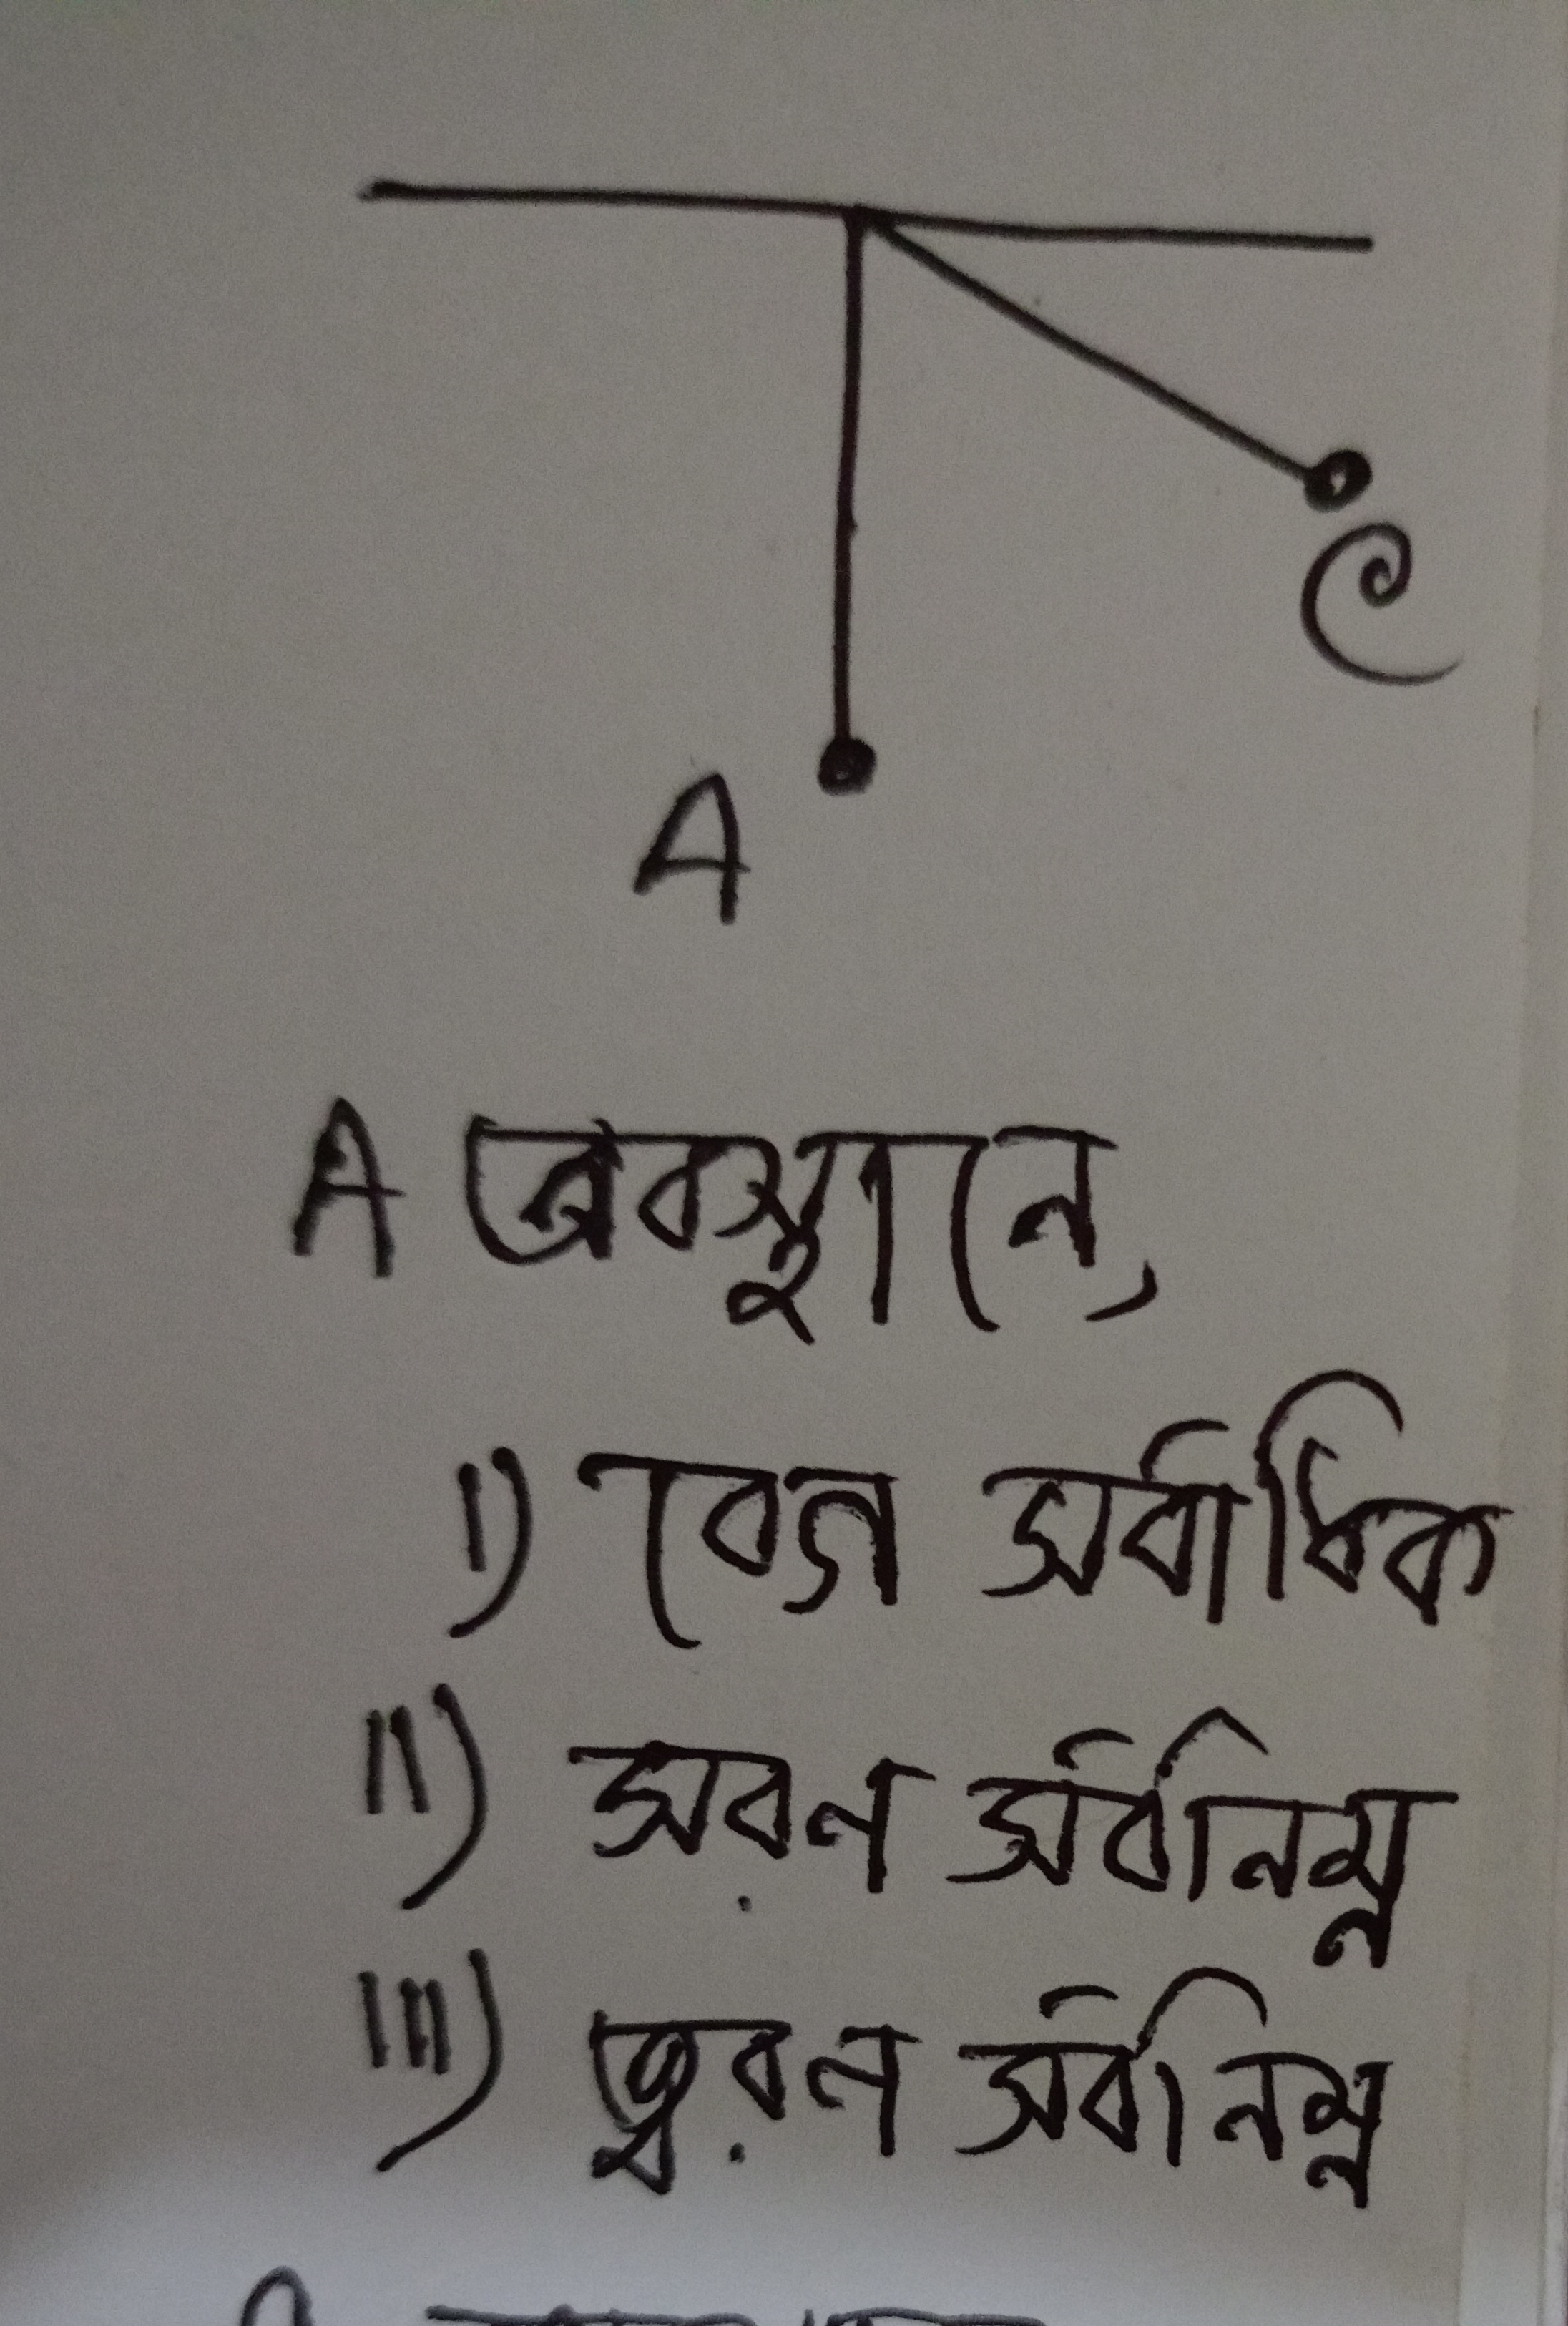 C
A
A অবস্থানে,
i) বেগ সর্বাধিক
ii) সরন সর্বনিম্ন
iii) ত্বরন সর্বনিম্ন